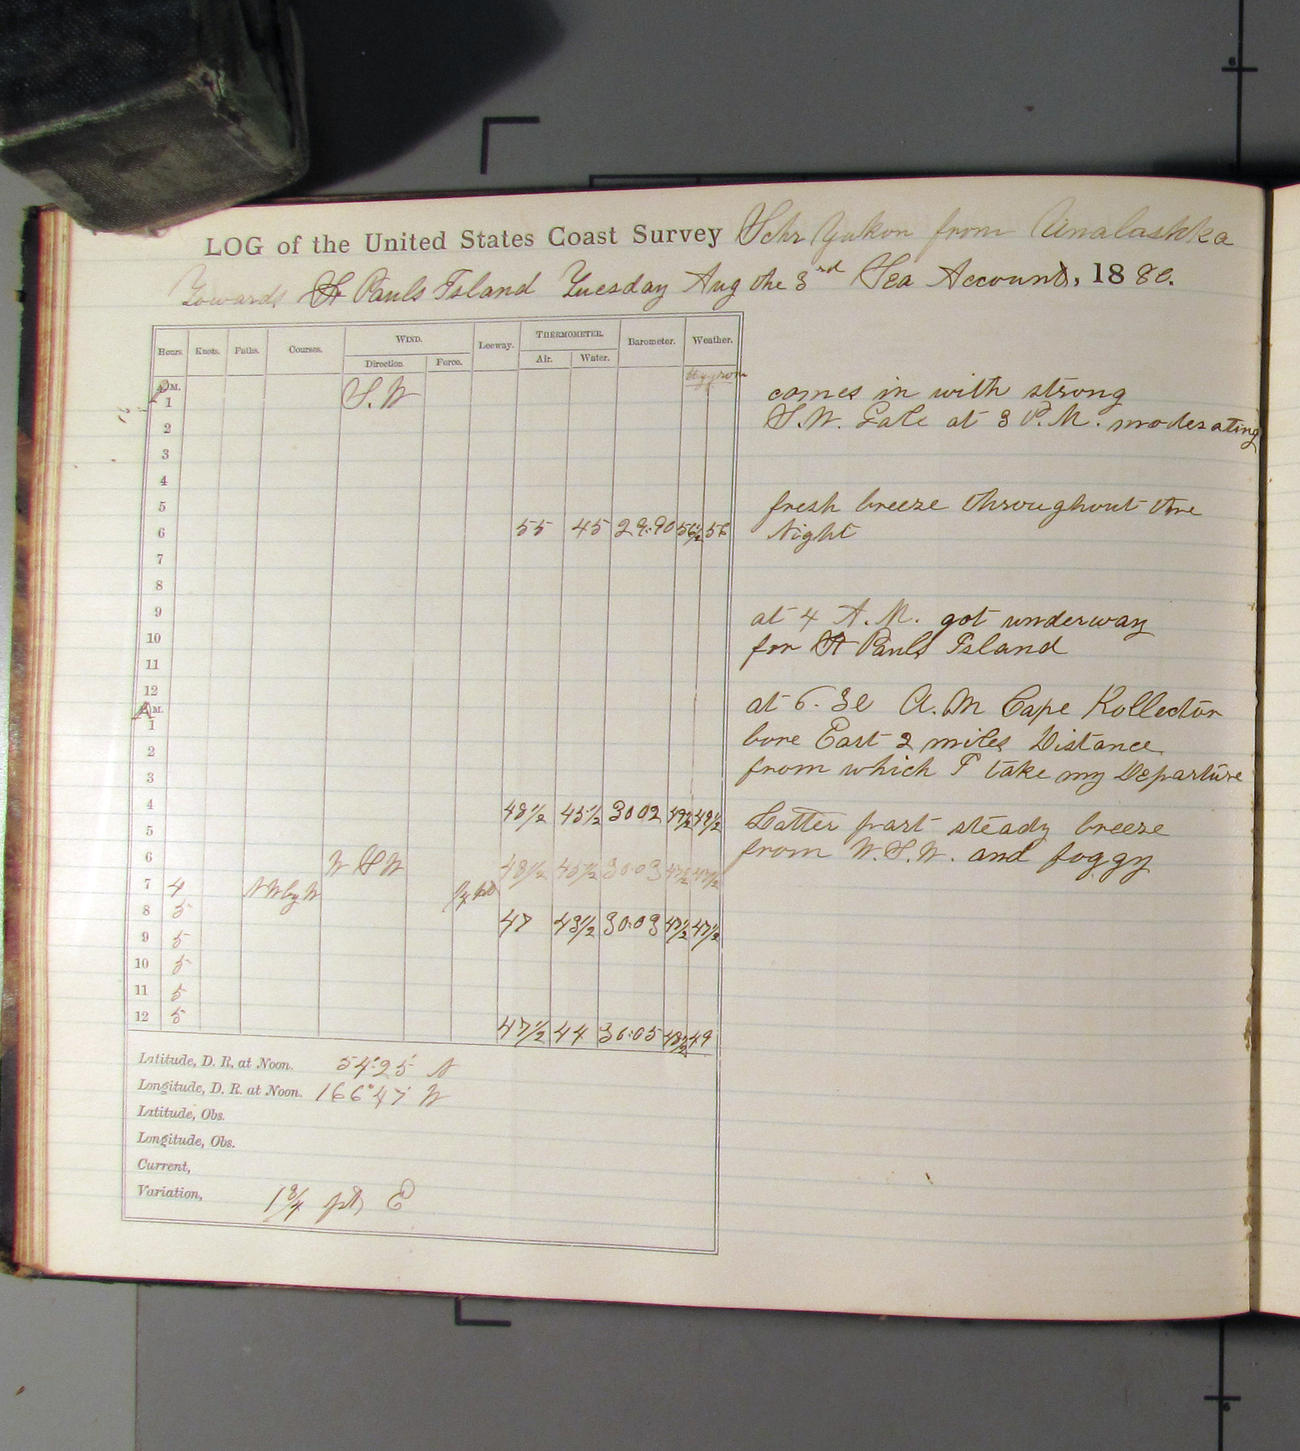 LOG of the United States Coast Survey Schr Yukon from Unalashka
Towards St Pauls Island Tuesday Aug the 3rd Sea Account, 1880.
Hours. Knots. Faths. Courses. WIND. Leeway. THERMOMETER. Barometer. Weather.
Direction. Force. Air. Water.
Hygrom
P M.
1 S.W
2
3
4
5
6 55 45 29.90 56½ 56
7
8
9
10
11
12
A M.
1
2
3
4 48½ 45½ 3002 49½ 49½
5
6 W S W 48½ 45½ 30.03 47½ 47½
7 4 N W by W
8 5 47 43½ 30.03 47½ 47½
9 5
10 5
11 5
12 5 47½ 44 30.05 48½ 49
Latitude, D. R. at Noon. 54°25' N
Longitude, D. R. at Noon. 166°47' W
Latitude, Obs.
Longitude, Obs.
Current,
Variation, 1¾ pts E
comes in with strong
S.W. Gale at 3 P.M. moderating
fresh breeze throughout the
Night
at 4 A.M. got underway
for St Pauls Island
at 6.30 A.M Cape Kollector
bore East 2 miles Distance
from which I take my Departure
Latter part steady breeze
from W.S.W. and foggy